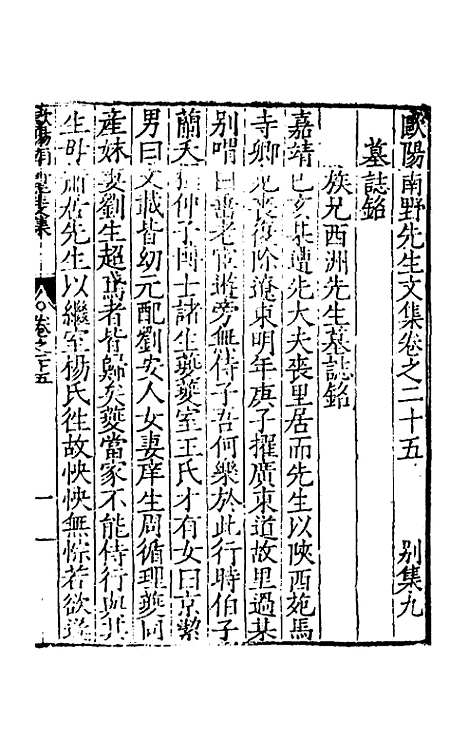 歐陽南野先生文集卷之二十五 別集九
墓誌銘
族兄西洲先生墓誌銘
嘉靖己亥某遭先大夫喪里居而先生以陝西苑馬
寺卿免喪復除遼東明年庚子擢廣東道故里過某
別喟曰嗇老宦遊旁無侍子吾何樂於此行時伯子
蘭夭仲子博士諸生夔夔室王氏才有女曰京潔
男曰文載皆幼元配劉安人女妻庠生周循理夔同
產妹妻劉生超為者皆歸矣夔當家不能侍行與其
生母肅居先生以繼室楊氏往故怏怏無悰若欲遂
歐陽南野文集 卷之二五 一